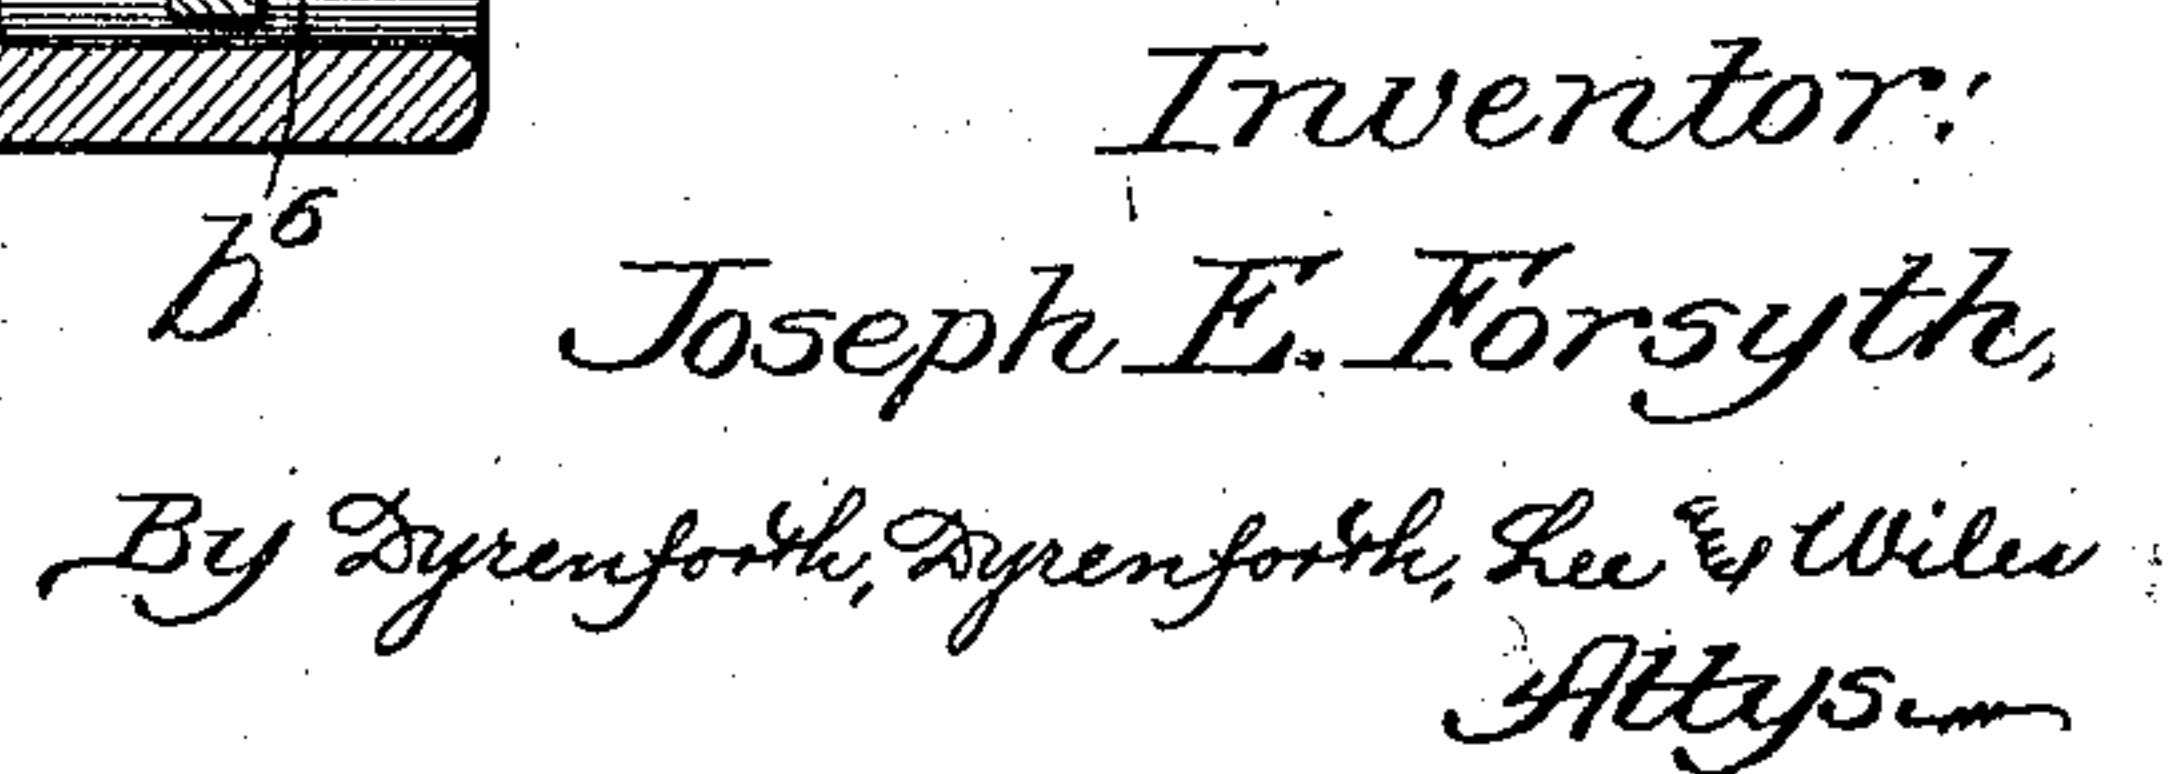 Inventor:
b⁶
Joseph E. Forsyth,
By Dyrenforth, Dyrenforth, Lee & Wiles
Attys